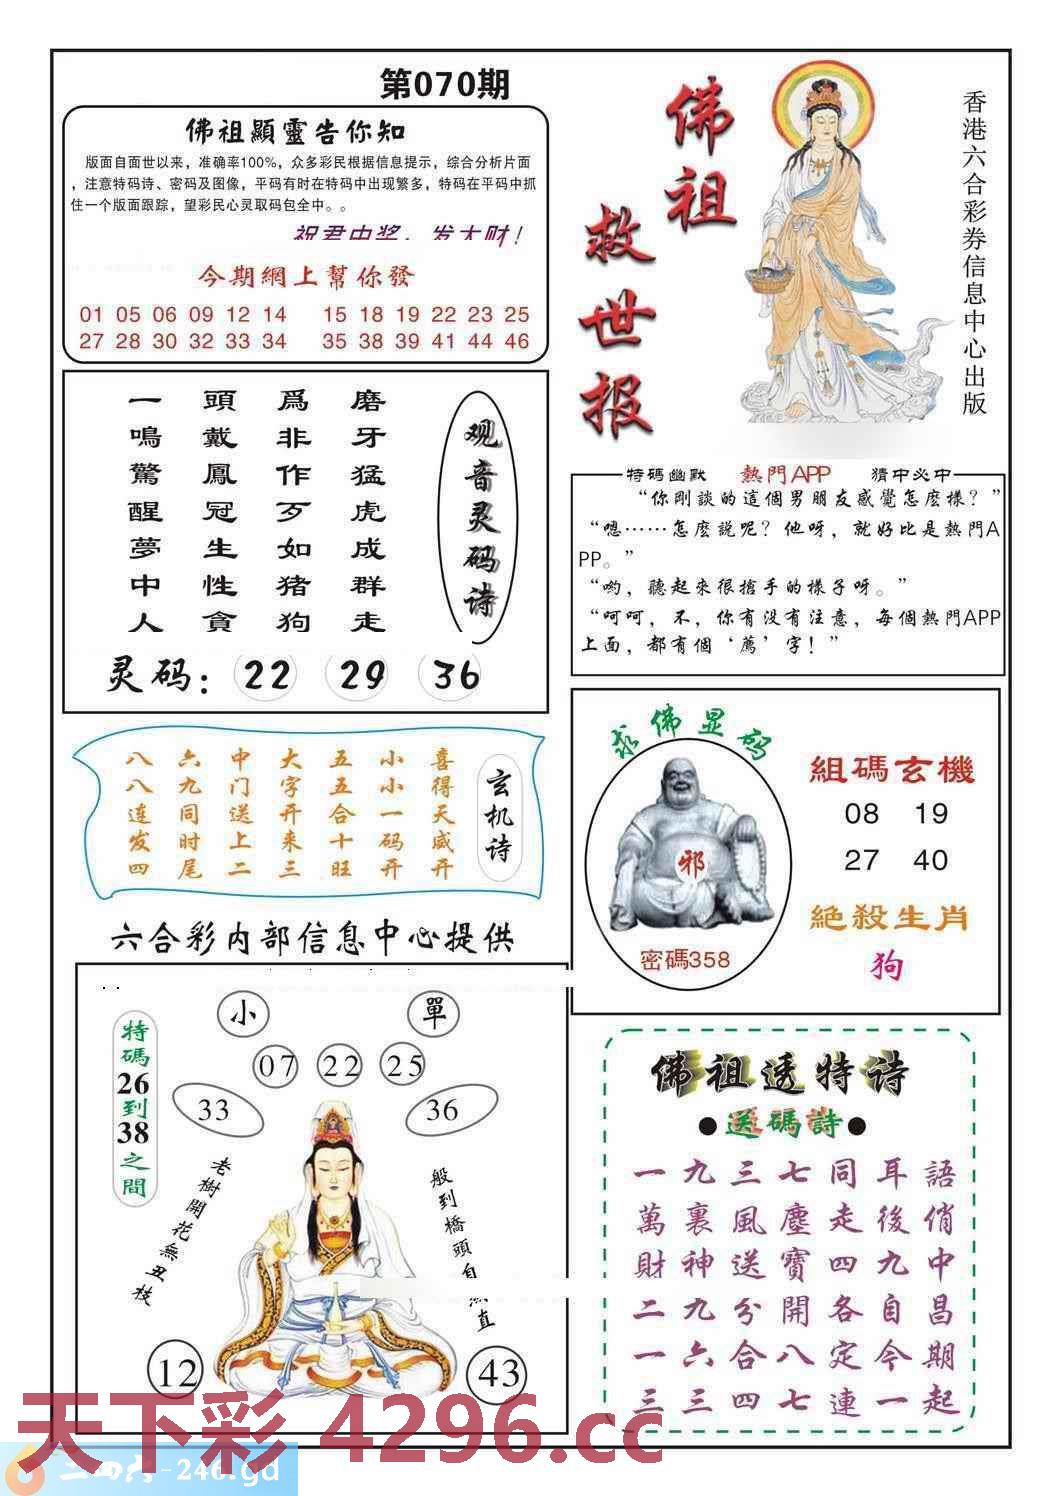 第070期
佛祖顯靈告你知
版面自面世以来，准确率100%，众多彩民根据信息提示，综合分析片面
，注意特码诗、密码及图像，平码有时在特码中出现繁多，特码在平码中抓
住一个版面跟踪，望彩民心灵取码包全中。。
祝君中奖，发大财！
今期網上幫你發
01 05 06 09 12 14 15 18 19 22 23 25
27 28 30 32 33 34 35 38 39 41 44 46
佛祖
救世报
香港六合彩券信息中心出版
观音灵码诗
磨牙猛虎成群走
爲非作歹如猪狗
頭戴鳳冠生性貪
一鳴驚醒夢中人
灵码：22 29 36
特码幽默 熱門APP 猜中必中
“你剛談的這個男朋友感覺怎麽樣？”
“嗯……怎麽説呢？他呀，就好比是熱門A
PP。”
“哟，聽起來很搶手的樣子呀。”
“呵呵，不，你有没有注意，每個熱門APP
上面，都有個‘薦’字！”
玄机诗
喜得天威开
小小一码开
五五合十旺
大字开来三
中门送上二
六九同时尾
八八连发四
求佛显码
邪
密碼358
組碼玄機
08 19
27 40
絶殺生肖
狗
六合彩内部信息中心提供
小 單
07 22 25
33 36
特碼26到38之間
老樹開花無丑枝
般到橋頭自直
12 43
佛祖透特诗
●送碼詩●
語俏中昌期起
耳後九自今一
同走四各定連
七塵寶開八七
三風送分合四
九裏神九六三
一萬財二一三
天下彩 4296.cc
二四六-246.gd